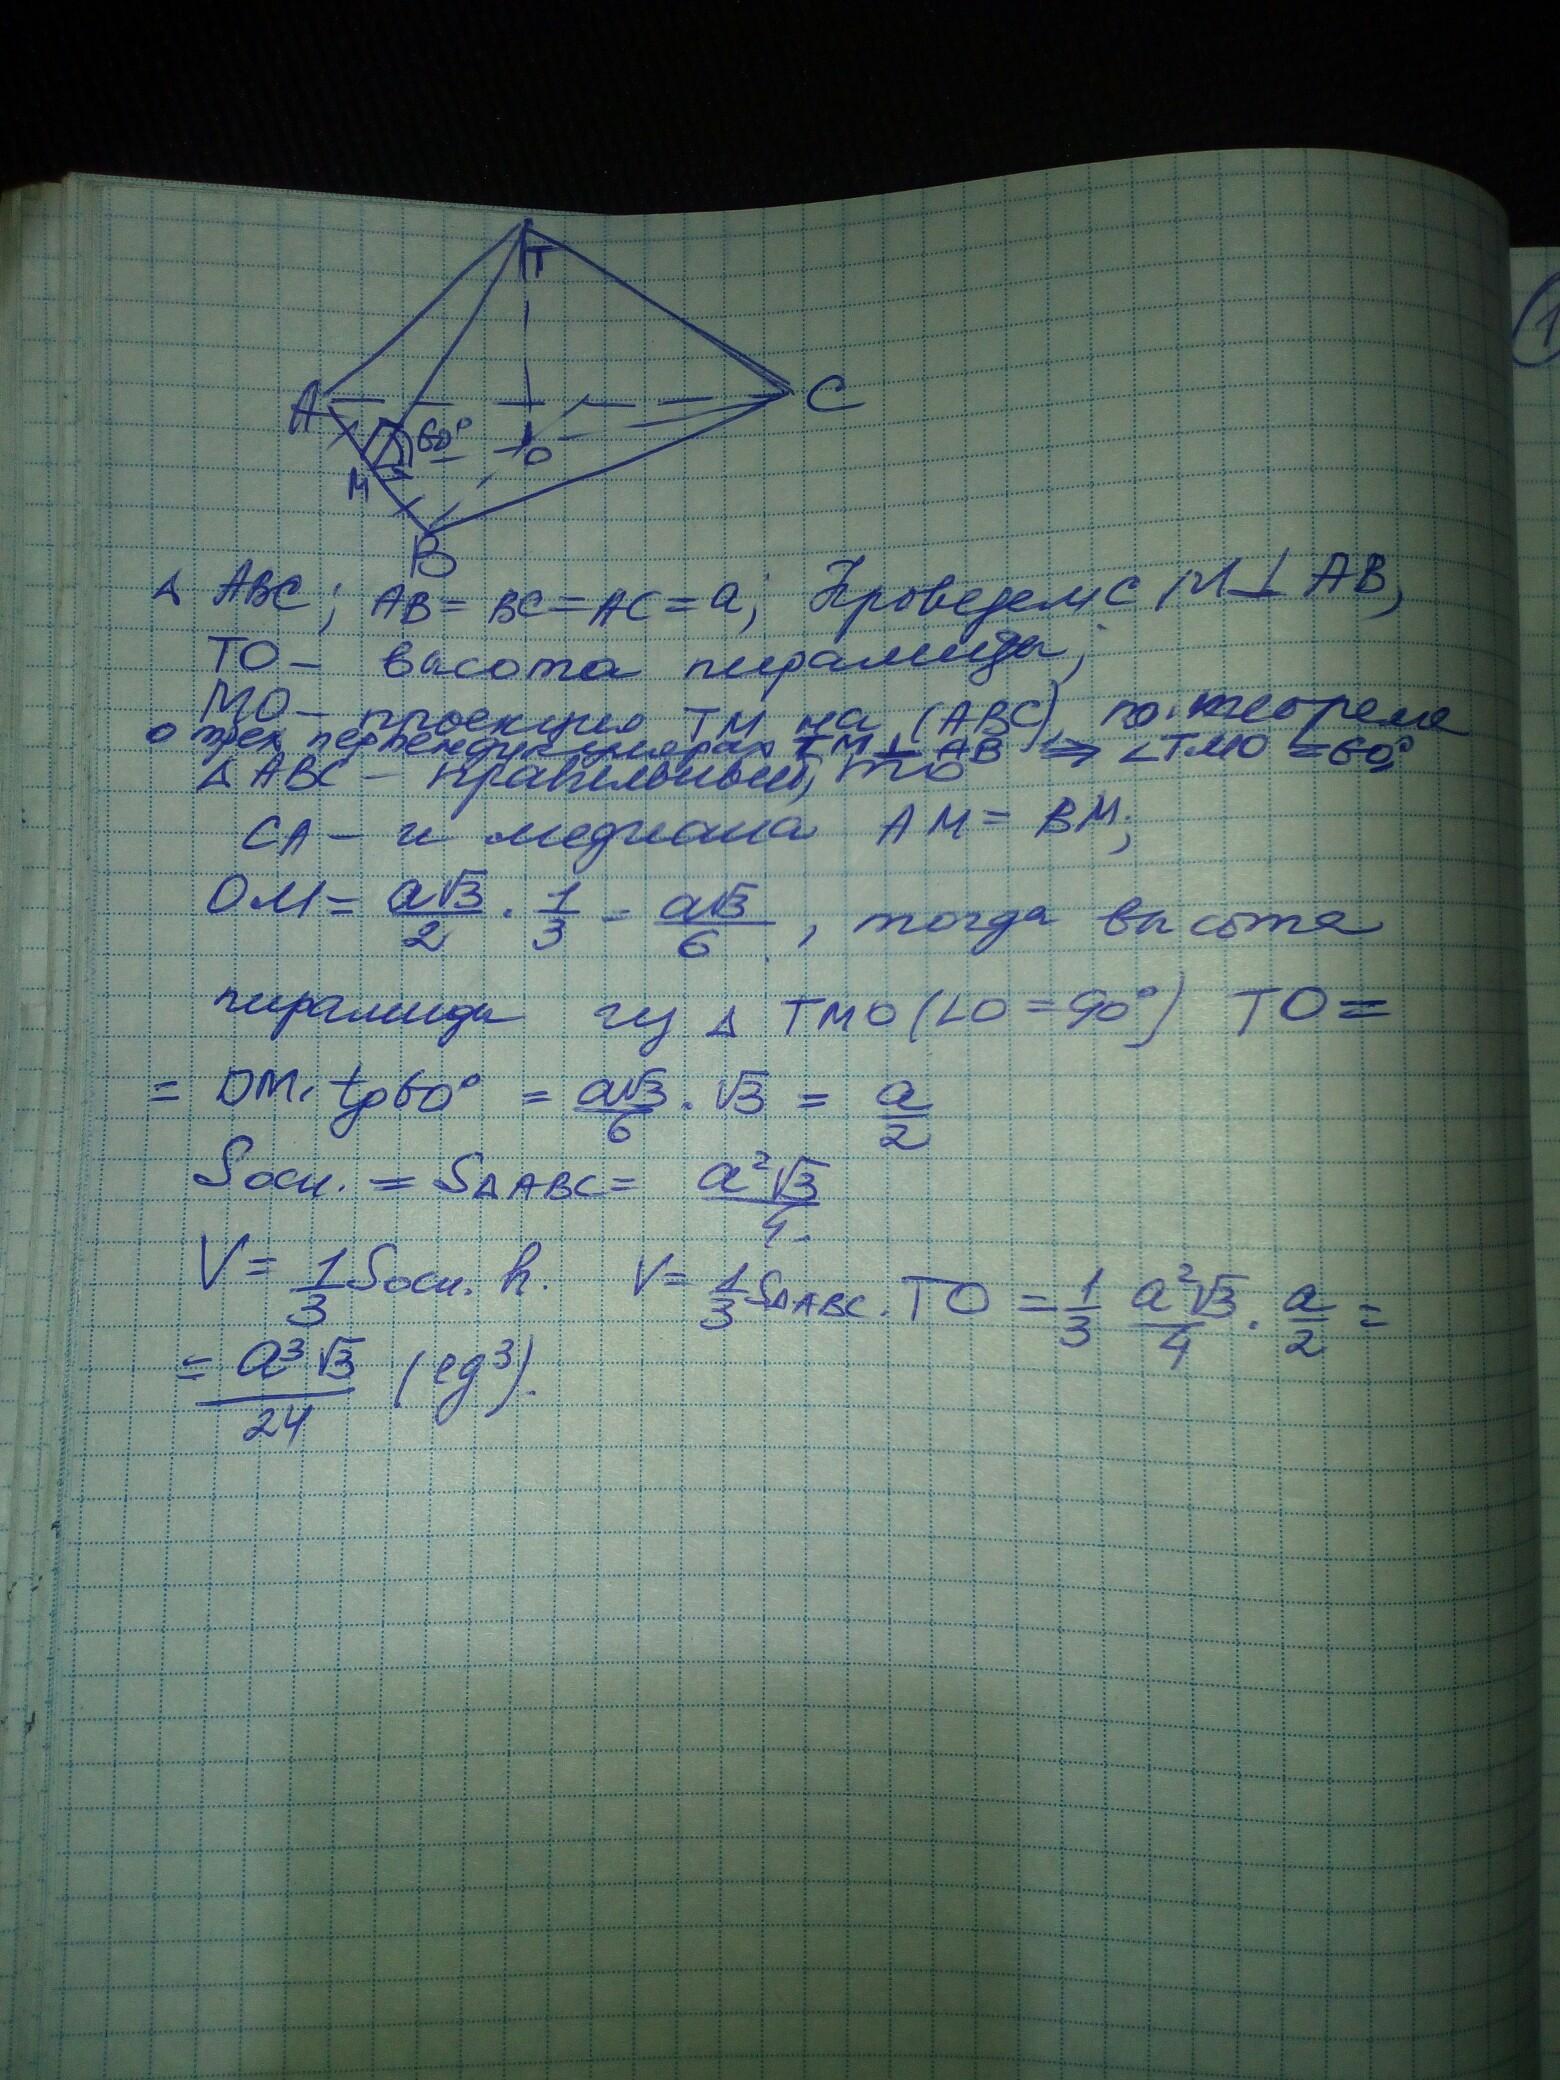 T
A
C
60°
M
O
B
Δ ABC; AB = BC = AC = a; Проведем CM ⊥ AB,
TO – высота пирамиды;
MO – проекция TM на (ABC), по теореме
о трех перпендикулярах TM ⊥ AB ⇒ ∠TMO = 60°
Δ ABC – правильный, то
CA – и медиана AM = BM;
OM = a√3/2 · 1/3 = a√3/6, тогда высота
пирамиды из Δ TMO (∠O = 90°) TO =
= OM · tg60° = a√3/6 · √3 = a/2
Sосн. = SΔABC = a²√3/4.
V = 1/3 Sосн. h. V = 1/3 SΔABC · TO = 1/3 a²√3/4 · a/2 =
= a³√3/24 (ед³).
1